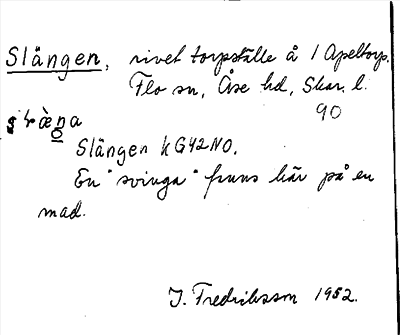 Slängen, rivet torpställe å 1 Apeltorp.
Flo sn, Åse hd, Skar. l.
90
Slängen kG42NO.
En "svinga" finns här på en
mad.
J. Fredriksson 1952.